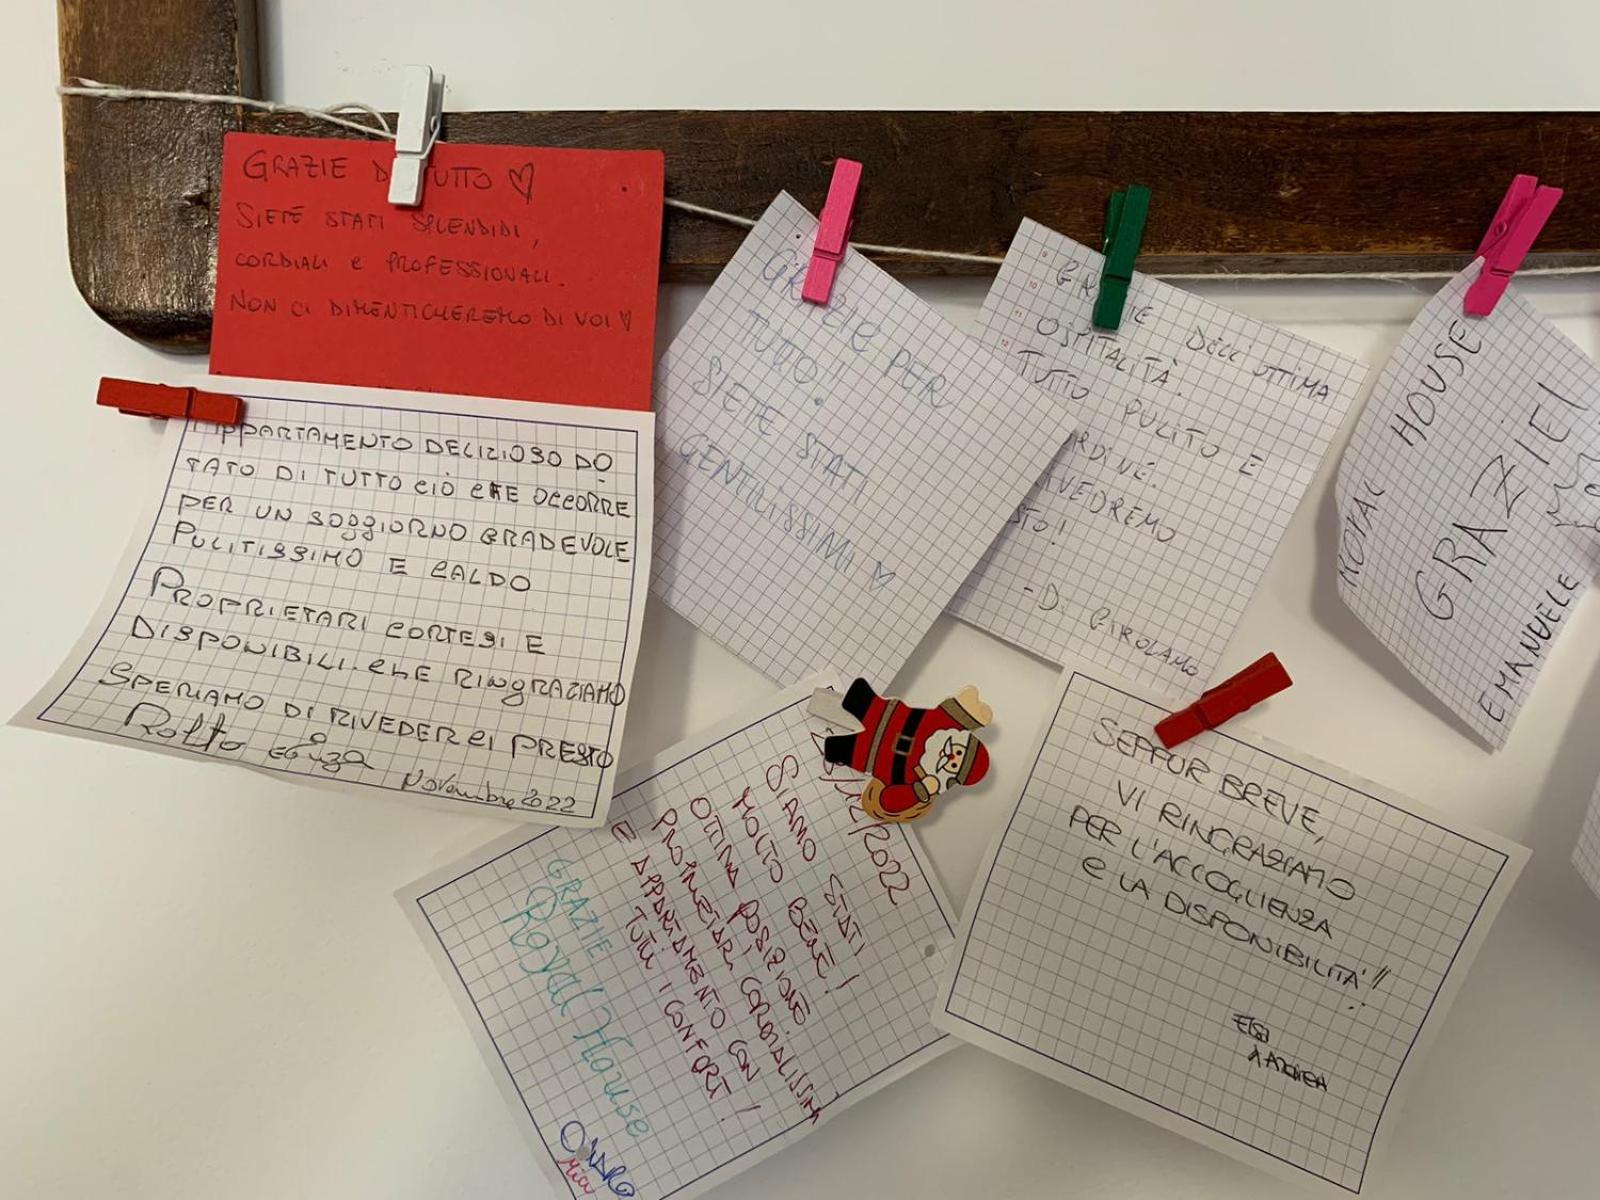 GRAZIE D TUTTO ♡
SIETE STATI SPLENDIDI,
CORDIALI e PROFESSIONALI.
NON CI DIMENTICHEREMO DI VOI ♡
APPARTAMENTO DELIZIOSO DO
TATO DI TUTTO CIÒ CHE OCCORRE
PER UN SOGGIORNO GRADEVOLE
PULITISSIMO E CALDO
PROPRIETARI CORTESI E
DISPONIBILI. CHE RINGRAZIAMO
SPERIAMO DI RIVEDERCI PRESTO
Novembre 2022
GRAZIE PER
TUTTO!
SIETE STATI
GENTILISSIMI ♡
DELL'OTTIMA
OSPITALITÀ.
TUTTO PULITO E
RDINE.
AVEDREMO
STO!
- Di GIROLAMO
ROYAL HOUSE
GRAZIE!
EMANUELE
2022
SIAMO STATI
MOLTO BENE!
OTTIMA POSIZIONE
PROPRIETARI CORDIALISSIMI
E APPARTAMENTO CON
TUTTI I CONFORT!
GRAZIE
Royal House
SEPPUR BREVE,
VI RINGRAZIAMO
PER L'ACCOGLIENZA
e LA DISPONIBILITÀ!!